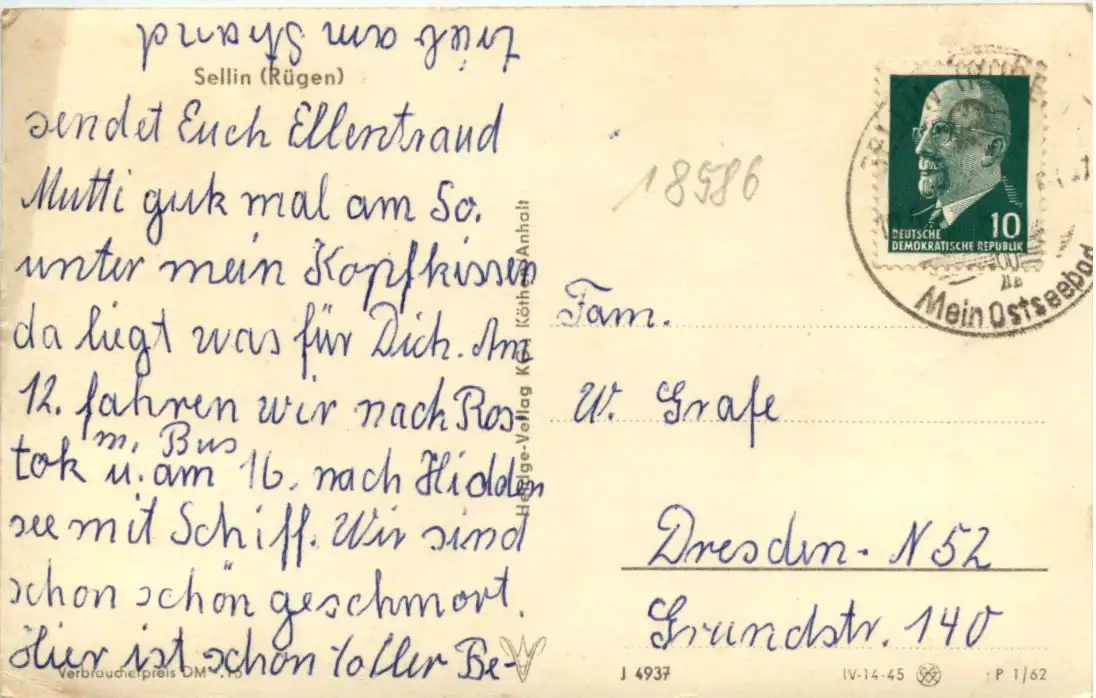 Sellin (Rügen)
sendet Euch Ellentraud
Mutti guk mal am So.
unter mein Kopfkissen
da liegt was für Dich. Am
12. fahren wir nach Ros-
m. Bus
tok u. am 16. nach Hidden
see mit Schiff. Wir sind
schon schön geschmort.
Hier ist schon toller Be-
trieb am Strand
Verbraucherpreis DM
Köthen Anhalt
18586
DEUTSCHE
DEMOKRATISCHE REPUBLIK
10
Mein Ostseebad
Fam.
W. Grafe
Dresden - N 52
Grundstr. 140
J 4937
IV-14-45
P 1/62